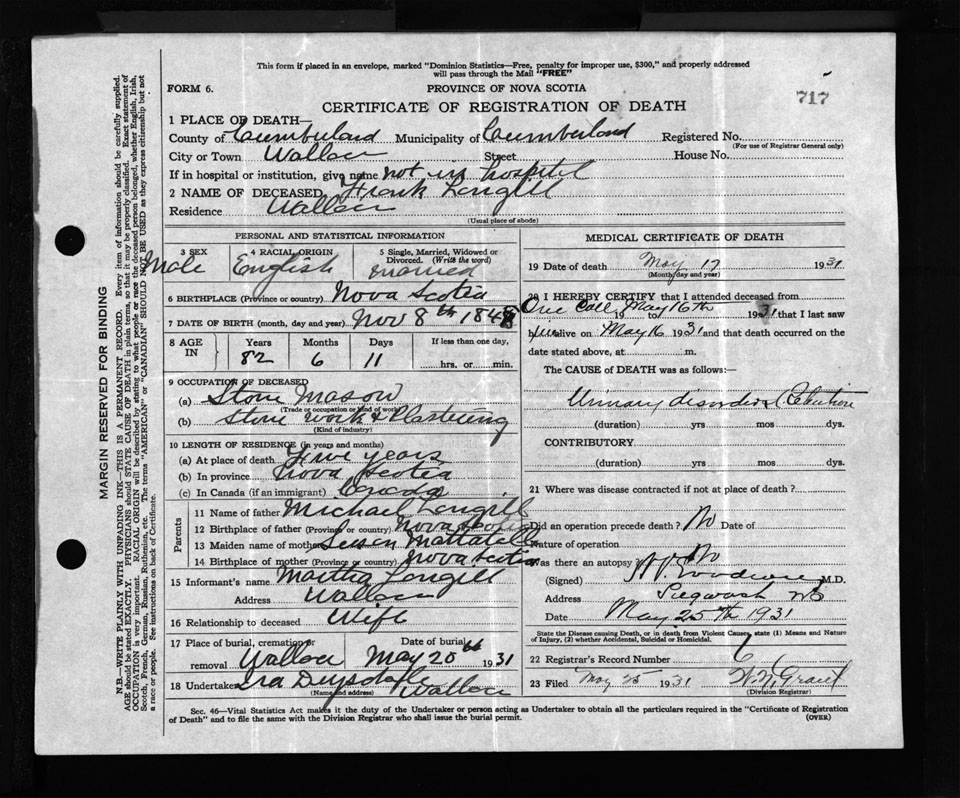 This form if placed in an envelope, marked "Dominion Statistics—Free, penalty for improper use, $300," and properly addressed
will pass through the Mail "FREE"
FORM 6.
PROVINCE OF NOVA SCOTIA
717
CERTIFICATE OF REGISTRATION OF DEATH
1 PLACE OF DEATH—
County of Cumberland Municipality of Cumberland Registered No.
(For use of Registrar General only)
City or Town Wallace Street House No.
If in hospital or institution, give name not in hospital
2 NAME OF DECEASED Frank Langill
Residence Wallace
(Usual place of abode)
PERSONAL AND STATISTICAL INFORMATION
3 SEX 4 RACIAL ORIGIN 5 Single, Married, Widowed or
Divorced. (Write the word)
Male English married
6 BIRTHPLACE (Province or country) Nova Scotia
7 DATE OF BIRTH (month, day and year) Nov 8th 1848
8 AGE IN Years Months Days If less than one day,
82 6 11 hrs. or min.
9 OCCUPATION OF DECEASED
(a) Stone Mason
(Trade or occupation or kind of work)
(b) Stone work & Plastering
(Kind of industry)
10 LENGTH OF RESIDENCE (in years and months)
(a) At place of death Five years
(b) In province Nova Scotia
(c) In Canada (if an immigrant) Canada
Parents
11 Name of father Michael Langill
12 Birthplace of father (Province or country) Nova Scotia
13 Maiden name of mother Susan Mattatall
14 Birthplace of mother (Province or country) Nova Scotia
15 Informant's name Martha Langill
Address Wallace
16 Relationship to deceased Wife
17 Place of burial, cremation or Date of burial
removal Wallace May 20th 1931
18 Undertaker Ira
(Name and address) Wallace
MEDICAL CERTIFICATE OF DEATH
19 Date of death May 17 1931
(Month, day and year)
20 I HEREBY CERTIFY that I attended deceased from
One Call 19 to May 16th 1931 that I last saw
him alive on May 16 1931 and that death occurred on the
date stated above, at m.
The CAUSE of DEATH was as follows:—
Urinary disorders
(duration) yrs mos dys.
CONTRIBUTORY
(duration) yrs mos dys.
21 Where was disease contracted if not at place of death?
Did an operation precede death? No Date of
Nature of operation
Was there an autopsy No
(Signed) M.D.
Address Pugwash NS
Date May 25th 1931
State the Disease causing Death, or in death from Violent Causes, state (1) Means and Nature
of Injury, (2) whether Accidental, Suicidal or Homicidal.
22 Registrar's Record Number 6
23 Filed May 25 1931 Grant
(Division Registrar)
Sec. 46—Vital Statistics Act makes it the duty of the Undertaker or person acting as Undertaker to obtain all the particulars required in the "Certificate of Registration
of Death" and to file the same with the Division Registrar who shall issue the burial permit. (OVER)
MARGIN RESERVED FOR BINDING
N.B.—WRITE PLAINLY WITH UNFADING INK—THIS IS A PERMANENT RECORD. Every item of information should be carefully supplied.
AGE should be stated EXACTLY. PHYSICIANS should STATE CAUSE OF DEATH in plain terms, so that it may be properly classified. Exact statement of
OCCUPATION is very important. RACIAL ORIGIN will be described by stating to what people or race the deceased person belonged, whether English, Irish,
Scotch, French, German, Russian, Ruthenian, etc. The terms "AMERICAN" or "CANADIAN" SHOULD NOT BE USED as they express citizenship but not
a race or people. See instructions on back of Certificate.